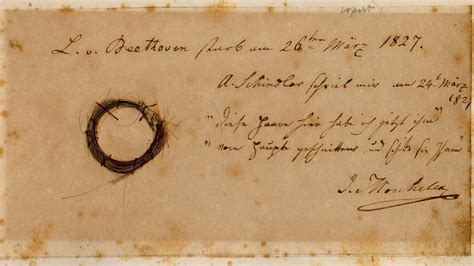 L. v. Beethoven starb am 26ten März 1827.
A. Schindler schrieb mir am 24t März
182
"diese Haare hier hab ich jetzt ihm
"vom Haupte geschnitten und schike sie Ihnen"
J. Moscheles